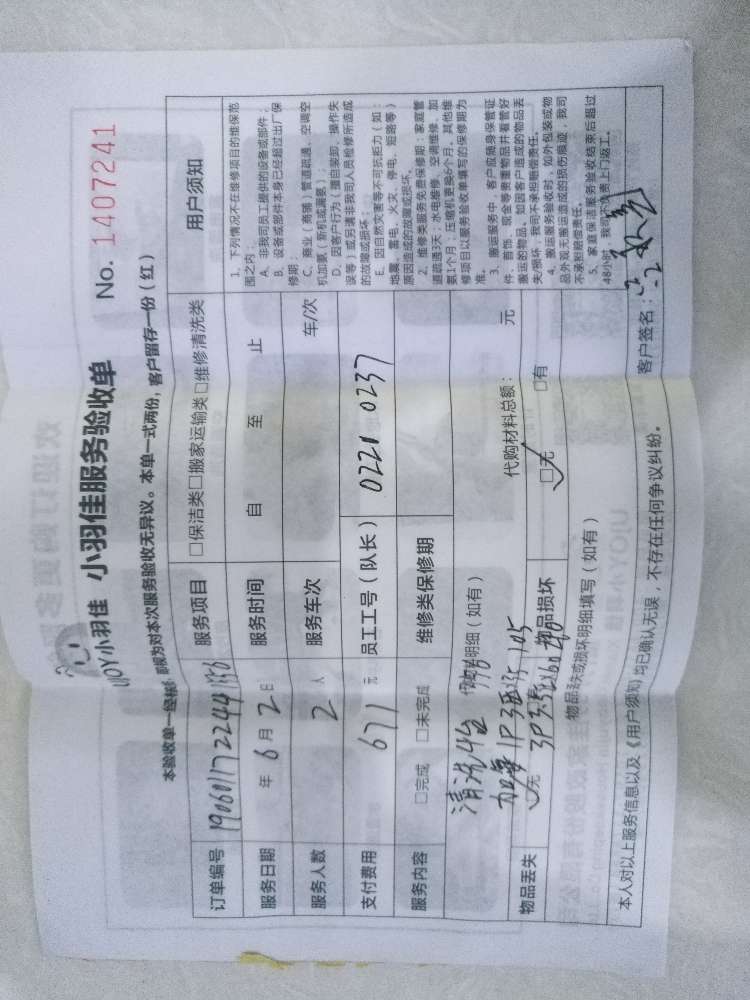 UJOY小羽佳 小羽佳服务验收单 No. 1407241
本验收单一经签 即视为对本次服务验收无异议。本单一式两份,客户留存一份(红)
订单编号 服务项目 □保洁类□搬家运输类□维修清洗类
服务日期 年 6 月 2 日 服务时间 自 至 止
服务人数 2 人 服务车次 车/次
支付费用 671 元 员工工号(队长) 0221 0237
服务内容 □完成 □未完成 维修类保修期
清洗4台
明细(如有) 代购材料总额: 元
物品丢失 □无 物品损坏 □无 □有
物品丢失或损坏明细填写(如有)
用户须知
1、下列情况不在维修项目的维保范
围之内:
A、非我司员工提供的设备或部件;
B、设备或部件本身已经超过出厂保
修期;
C、商业(商铺)管道疏通、空调空
机加氨(新机或漏氨);
D、因客户行为(擅自装卸、操作失
误等)或另请非我司人员检修所造成
的故障或损坏。
E、因自然灾害等不可抗拒力(如:
地震、雷电、火灾、停电、短路等)
原因造成的故障或损坏。
2、维修类服务免费保修期:家庭管
道疏通3天;水电维修、空调维修、加
氨1个月;压缩机更换6个月。其他维
修项目以服务验收单填写的保修期为
准。
3、搬运服务中,客户应随身保管证
件、首饰、现金等贵重物品并看管好
搬运的物品。如因客户造成的物品丢
失/损坏,我司不承担赔偿责任。
4、搬运服务验收时,如外包装或物
品外观无搬运造成的损伤痕迹,我司
不承担赔偿责任。
5、家庭保洁服务验收结束后超过
48小时,我司不负责上门返工。
本人对以上服务信息以及《用户须知》均已确认无误,不存在任何争议纠纷。 客户签名: